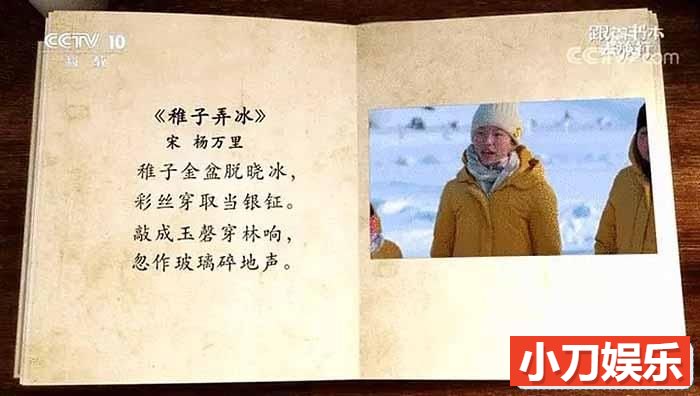 CCTV 10
科教
跟着书本
去旅行
CCTV.com
《稚子弄冰》
宋 杨万里
稚子金盆脱晓冰，
彩丝穿取当银钲。
敲成玉磬穿林响，
忽作玻璃碎地声。
小刀娱乐